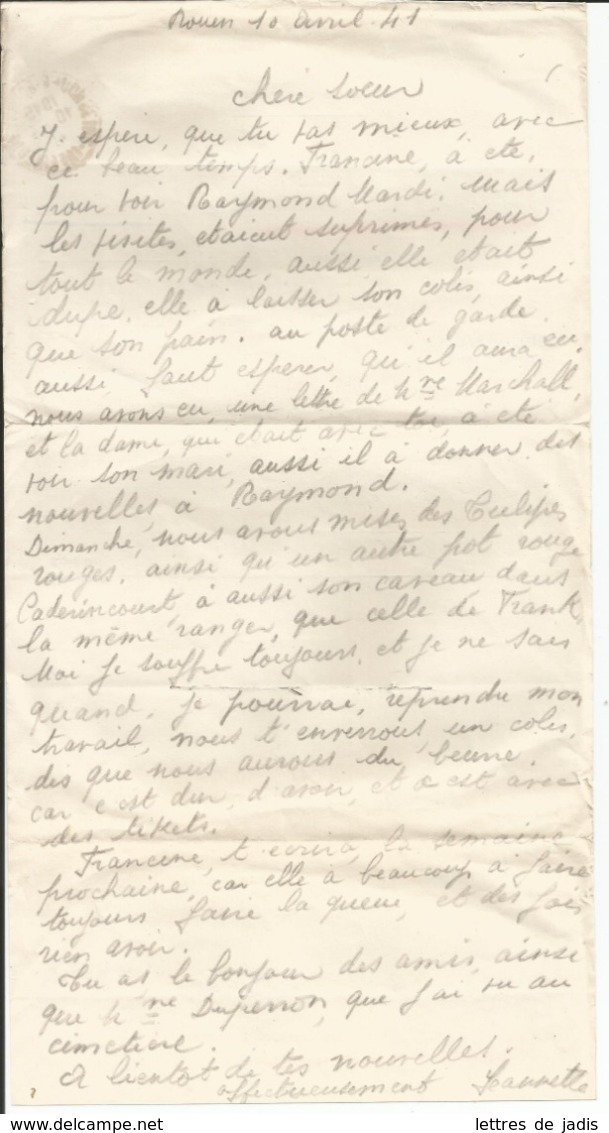 Rouen 10 avril. 41
chère Soeur
J. espère, que tu vas mieux, avec
ce beau temps. Francine, à été,
pour voir Raymond Mardi. Mais
les visites, etaient suprimes, pour
tout le monde, aussi elle etait
dupe. elle à laisser son colis, ainsi
que son pain. au poste de garde.
aussi faut esperer, qu'il aura eu.
nous avons eu, une lettre de Mme Marchall,
et la dame, qui etait avec toi, à été
voir son mari, aussi il à donner, des
nouvelles à Raymond.
Dimanche, nous avons mises, des Tulipes
rouges, ainsi qu'un autre pot rouge
Caderincourt, à aussi son caveau dans
la même ranger, que celle de Frank,
Moi je souffre toujours, et je ne sais
quand, je pourrai, reprendre mon
travail, nous t'enverrons, un colis,
dès que nous aurons du beurre.
car c'est dur, d'avoir, et c est avec
des tikets.
Francine, t'ecrira, la semaine
prochaine, car elle à beaucoup à faire
toujours faire la queue, et des fois
rien avoir.
Tu as le bonjour des amis, ainsi
que Mme Duperron, que j'ai vu au
cimetiere.
A bientot de tes nouvelles.
affectueusement Jeannette
lettres de jadis